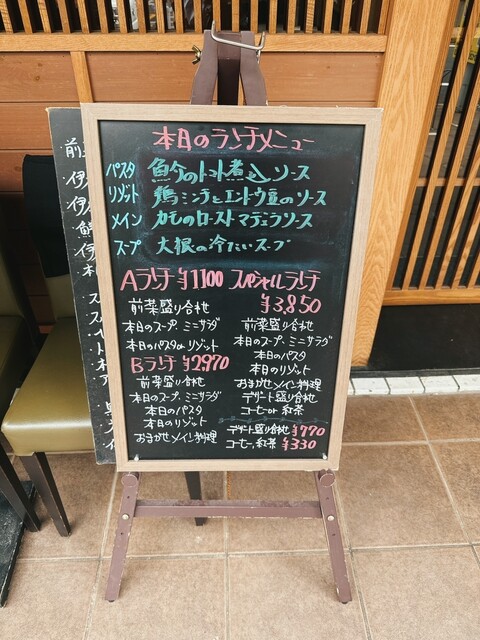 本日のランチメニュー
パスタ 魚介のトマト煮込ソース
リゾット 鶏ミンチとエンドウ豆のソース
メイン カモのロースト マデュラソース
スープ 大根の冷たいスープ
Aランチ ¥1100
前菜盛り合せ
本日のスープ、ミニサラダ
本日のパスタorリゾット
Bランチ ¥2,970
前菜盛り合せ
本日のスープ、ミニサラダ
本日のパスタ
本日のリゾット
おまかせメイン料理
スペシャルランチ
¥3,850
前菜盛り合せ
本日のスープ、ミニサラダ
本日のパスタ
本日のリゾット
おまかせメイン料理
デザート盛り合せ
コーヒーor 紅茶
デザート盛り合せ ¥770
コーヒー, 紅茶 ¥330
前
伊